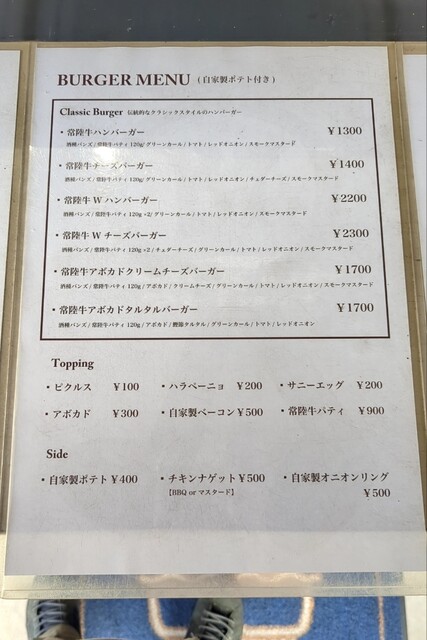 BURGER MENU (自家製ポテト付き)
Classic Burger 伝統的なクラシックスタイルのハンバーガー
・常陸牛ハンバーガー ¥1300
酒種バンズ/常陸牛パティ 120g/グリーンカール/トマト/レッドオニオン/スモークマスタード
・常陸牛チーズバーガー ¥1400
酒種バンズ/常陸牛パティ 120g/グリーンカール/トマト/レッドオニオン/チェダーチーズ/スモークマスタード
・常陸牛 W ハンバーガー ¥2200
酒種バンズ/常陸牛パティ 120g ×2/グリーンカール/トマト/レッドオニオン/スモークマスタード
・常陸牛 W チーズバーガー ¥2300
酒種バンズ/常陸牛パティ 120g ×2/チェダーチーズ/グリーンカール/トマト/レッドオニオン/スモークマスタード
・常陸牛アボカドクリームチーズバーガー ¥1700
酒種バンズ/常陸牛パティ 120g/アボカド/クリームチーズ/グリーンカール/トマト/レッドオニオン/スモークマスタード
・常陸牛アボカドタルタルバーガー ¥1700
酒種バンズ/常陸牛パティ 120g/アボカド/鰹節タルタル/グリーンカール/トマト/レッドオニオン
Topping
・ピクルス ¥100 ・ハラペーニョ ¥200 ・サニーエッグ ¥200
・アボカド ¥300 ・自家製ベーコン ¥500 ・常陸牛パティ ¥900
Side
・自家製ポテト ¥400 ・チキンナゲット ¥500 ・自家製オニオンリング
【BBQ or マスタード】 ¥500